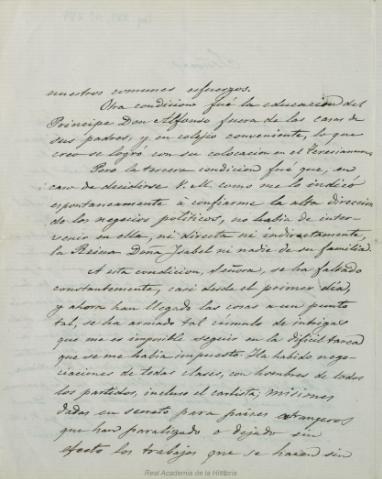 nuestros comunes esfuerzos.
Otra condicion fué la educacion del
Príncipe Don Alfonso fuera de las casas de
sus padres, y en colejio conveniente, lo que
creo se logró con su colocacion en el Teresianum.
Pero la tercera condicion fué que, en
caso de decidirse V. M. como me lo indicó
espontaneamente à confiarme la alta direccion
de los negocios politicos, no habia de inter-
venir en ella, ni directa ni indirectamente,
la Reina Doña Isabel ni nadie de su familia.
A esta condicion, Señora, se ha faltado
constantemente, casi desde el primer dia,
y ahora han llegado las cosas a un punto
tal, se ha armado tal cúmulo de intrigas
que me es imposible seguir en la dificil tarea
que se me habia impuesto. Ha habido nego-
ciaciones de todas clases, con hombres de todos
los partidos, incluso el carlista; misiones
dadas en secreto para paises estrangeros
que han paralizado o dejado sin
efecto los trabajos que se hacian sin
Real Academia de la Historia